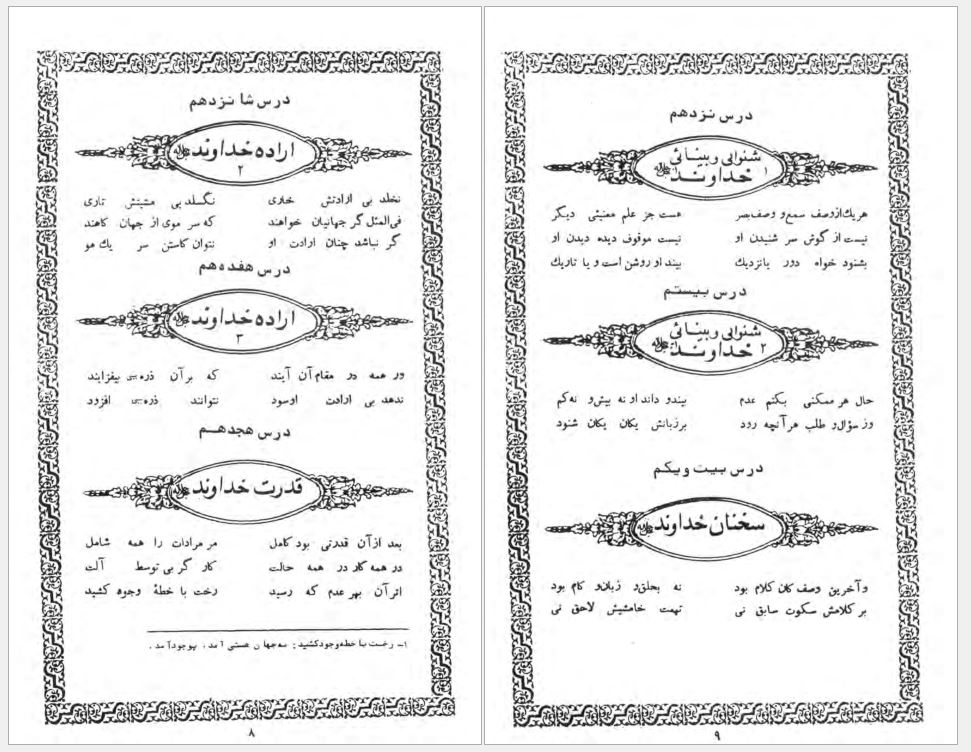 درس شانزدهم
اراده خداوند جل جلاله
۲
نخلد بی ارادتش خاری نگسلد بی مشیتش تاری
فی‌المثل گر جهانیان خواهند که سر موی از جهان کاهند
گر نباشد چنان ارادت او نتوان کاستن سر یك مو
درس هفدهم
اراده خداوند جل جلاله
۳
ور همه در مقام آن آیند که بر آن ذره‌یی بیفزایند
ندهد بی ارادت او سود نتوانند ذره‌یی افزود
درس هجدهم
قدرت خداوند جل جلاله
بعد از آن قدرتی بود کامل مر مرادات را همه شامل
در همه کار در همه حالت کار گر بی توسط آلت
اثر آن بهر عدم که رسید رخت با خطهٔ وجود کشید
۱ـ رخت با خطه وجود کشید: به جهان هستی آمد، بوجود آمد.
۸
درس نزدهم
شنوایی و بینائی
خداوند جل جلاله ۱
هر یك از وصف سمع و وصف بصر هست جز علم معنیئی دیگر
نیست از گوش سر شنیدن او نیست موقوف دیده دیدن او
بشنود خواه دور یا نزدیك بیند او روشن است و یا تاریك
درس بیستم
شنوایی و بینائی
۲ خداوند جل جلاله
حال هر ممکنی بکتم عدم بیند و داند او نه بیش و نه کم
وز سؤال و طلب هر آنچه رود بر زبانش یکان یکان شنود
درس بیت و یکم
سخنان خداوند جل جلاله
و آخرین وصف کان کلام بود نه بحلق و زبان و کام بود
بر کلامش سکوت سابق نی تهمت خامشیش لاحق نی
۹